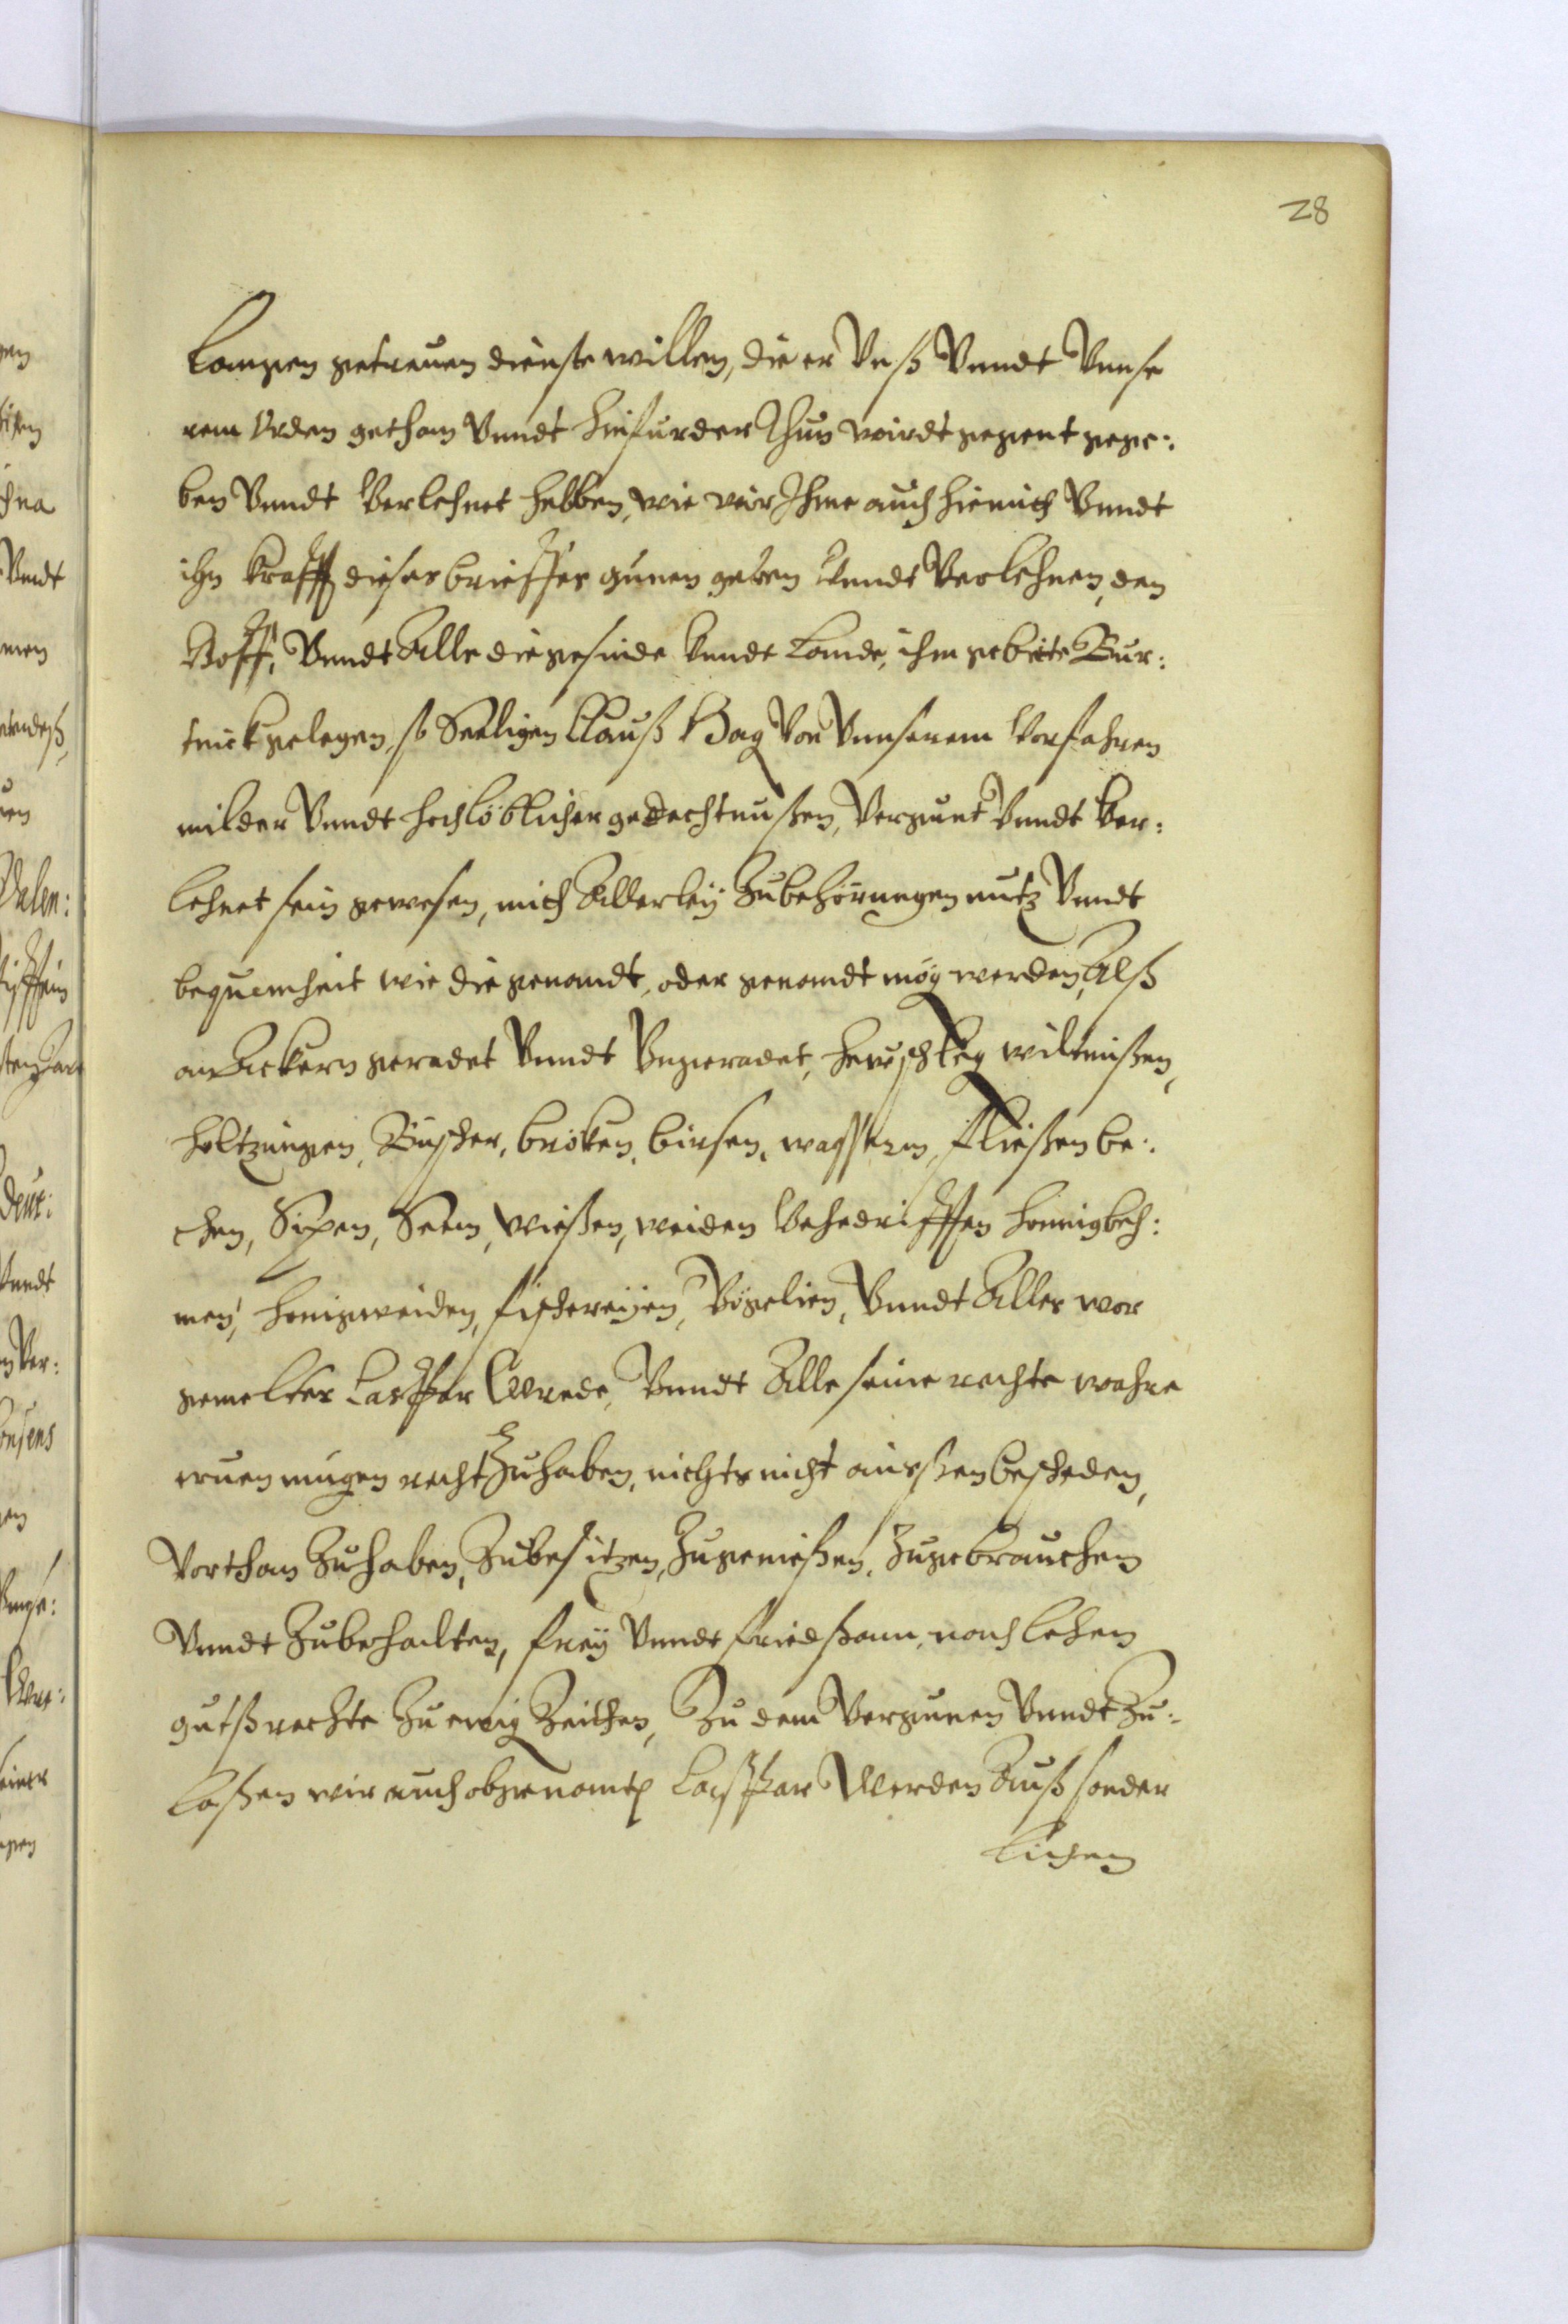 28
Langen getreuen dienste willen, die er Vnß Vnndt Vnnse
rem Orden gethan Vnndt hinfurder thun wirdt gegent gege:
ben Vnndt Verlehnet hebben, wie wir Ihme auch hiemith Vnndt
ihn krafft dieses brieffes gunen geben Vnndt Verlehnen, den
Hoff, Vnndt Alle die gesinde Vnndt Lande, ihm gebiete Bur:
tnick gelegen, so Seeligen Clauß Hag Von Vnnserem Vorfahren
milder Vnndt hochlöblicher gedechtnußen, Vergunt Vnndt Ver:
lehnet sein gewesen, mith Allerleÿ Zubehörungen nutz Vnndt
bequemheit wie die genandt, oder genandt mög werden, Alß
an Ackern geradet Vnndt Vngeradet, heuschleg wiltnißen,
holtzungen, Büscher, bröken, birsen, wassern, fließen be:
chen, Sipen, Seen, wießen, weiden Vehedrifften honnigbeh:
men, honigweiden, fischereÿen, Vögelien, Vnndt Alles wor
gemelter Casspar Wrede, Vnndt Alle seine rechte wahre
eruen mugen recht Zu haben, nichts nicht aussenbescheden,
Vorthan Zu haben, Zubesitzen, Zugenießen, Zugebrauchen
Vnndt Zubehalten, freÿ Vnndt friedsam, nach lehen
gutßrechte Zu ewig Zeithen, Zu dem Vergunen Vnndt Zu:
laßen wir auch obgenamts Casspar Wreden Auß sonder
lichen